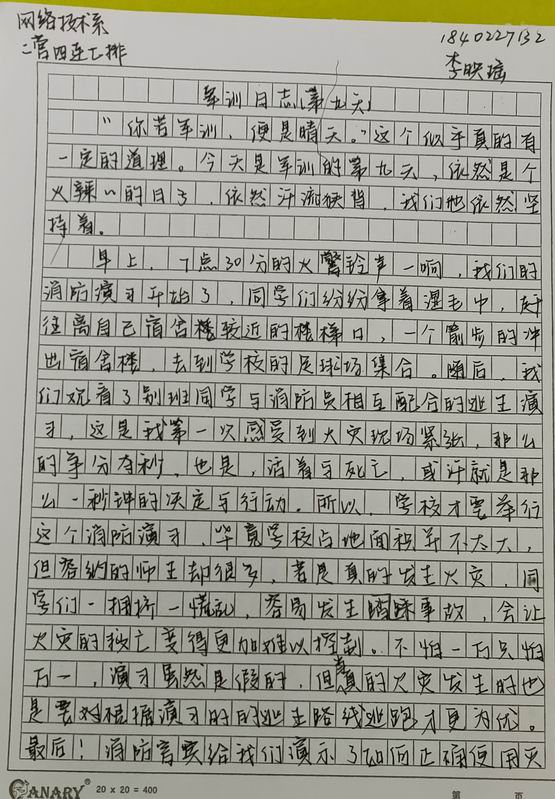 网络技术系
二营四连七排
1840227132
李映瑶
军训日志(第九天)
“你若军训,便是晴天。”这个似乎真的有
一定的道理。今天是军训的第九天,依然是个
火辣辣的日子,依然汗流浃背,我们也依然坚
持着。
早上,7点30分的火警铃声一响,我们的
消防演习开始了,同学们纷纷拿着湿毛巾,
往离自己宿舍楼较近的楼梯口,一个箭步的冲
出宿舍楼,去到学校的足球场集合。随后,我
们观看了别班同学与消防员相互配合的逃生演
习,这是我第一次感受到火灾现场紧张,那么
的争分夺秒。也是,活着与死亡,或许就是那
么一秒钟的决定与行动。所以,学校才要举行
这个消防演习,毕竟学校占地面积并不太大,
但容纳的师生却很多,若是真的发生火灾,同
学们一拥挤一慌乱,容易发生踏踩事故,会让
火灾的救亡变得更加难以控制。不怕一万只怕
万一,演习虽然是假的,但真的火灾发生时也
是要对根据演习时的逃生路线逃跑才更为优。
最后!消防官实给我们演示了如何正确使用灭
CANARY® 20 x 20 = 400
第 页